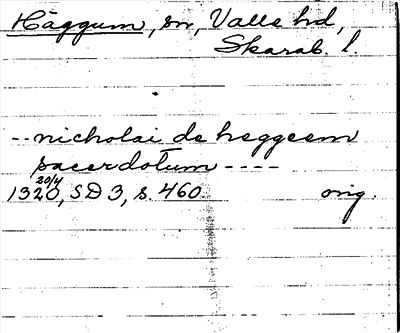 Häggum, sn, Valle hd,
Skarab. l.
-- nicholai de heggeem
sacerdotum ----
20/4
1320, SD 3, s. 460. orig.